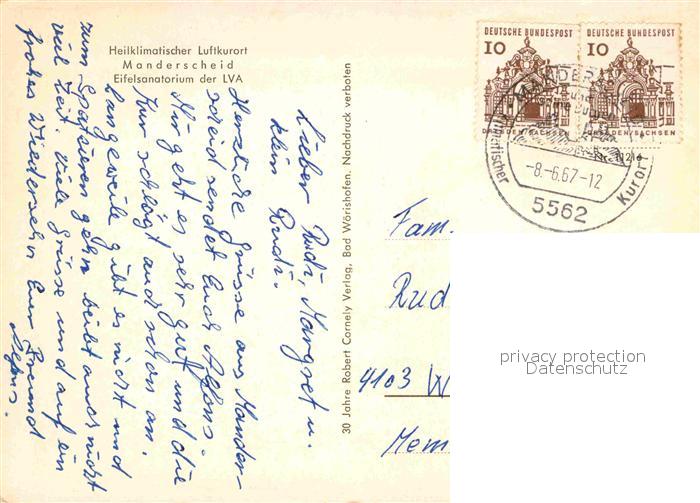 Heilklimatischer Luftkurort
Manderscheid
Eifelsanatorium der LVA
Lieber Rudi, Margret u.
klein Rudi.
Herzliche Grüsse aus Mander-
scheid sendet Euch Alfons.
Mir geht es sehr gut und die
Kur schlägt auch schon an.
Langeweile gibt es nicht und
zum Spazieren gehn bleibt auch nicht
viel Zeit. Viele Grüsse und auf ein
frohes Wiedersehn Euer Freund
Alfons.
30 Jahre Robert Cornely Verlag, Bad Wörishofen. Nachdruck verboten
DEUTSCHE BUNDESPOST
10
DRESDEN/SACHSEN
DEUTSCHE BUNDESPOST
10
DRESDEN/SACHSEN
MANDER
-8.-6.67-12
5562
Kurort
Fam.
Rud
4103 W
Mem
privacy protection
Datenschutz